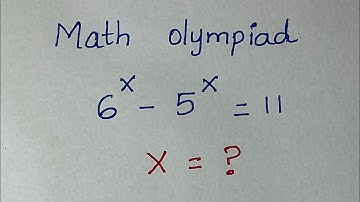 Math olympiad
6^x - 5^x = 11
x = ?